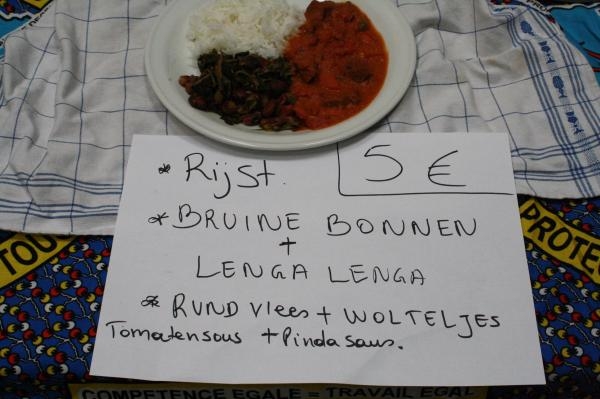 * Rijst. 5 €
* BRUINE BONNEN
+
LENGA LENGA
* RUND vlees + WOLTELJES
Tomatensous + Pindasaus.
TOU
PROTEC
COMPETENCE EGALE = TRAVAIL EGAL